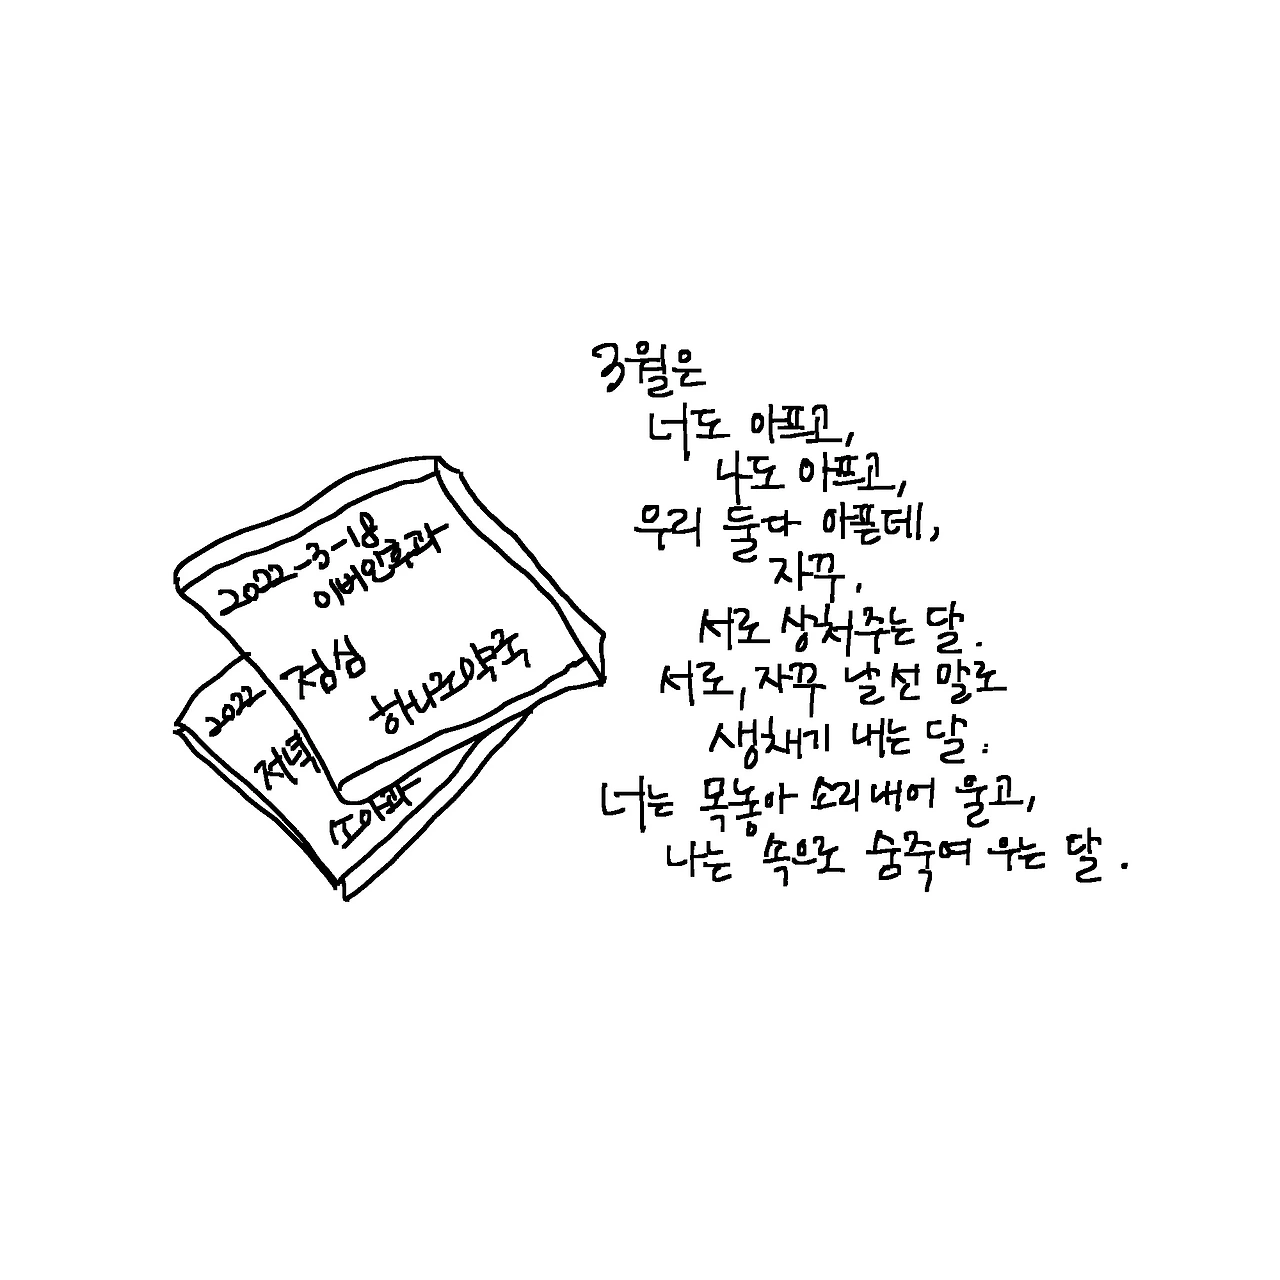 2022-3-18
이비인후과
점심
하나로약국
2022
저녁
소아과
3월은
너도 아프고,
나도 아프고,
우리 둘다 아픈데,
자꾸.
서로 상처주는 달.
서로, 자꾸 날선 말로
생채기 내는 달.
너는 목놓아 소리내어 울고,
나는 속으로 숨죽여 우는 달.